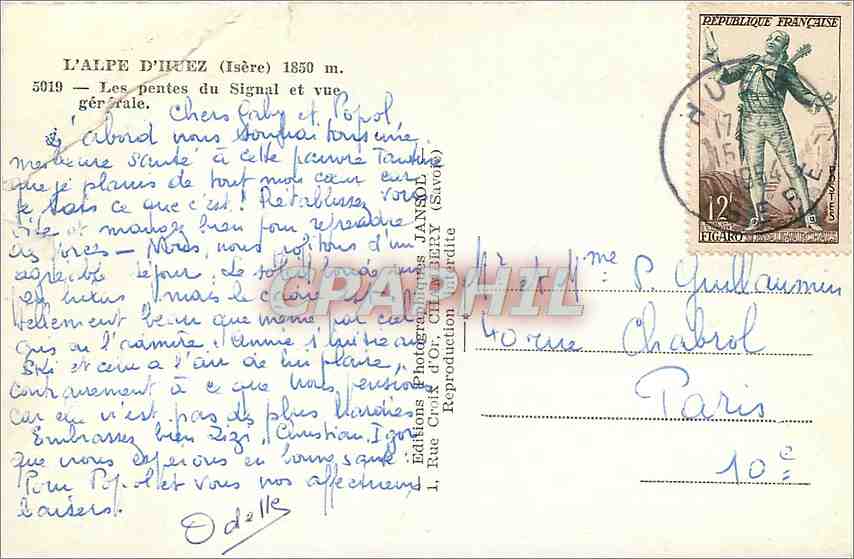 L'ALPE D'HUEZ (Isère) 1850 m.
5019 — Les pentes du Signal et vue
générale.
Chers Gaby et Popol
D'abord nous souhaitons une
meilleure santé à cette pauvre
que je plains de tout mon cœur car
je sais ce que c'est! Rétablissez vous
vite et mangez bien pour reprendre
des forces — Nous, nous profitons d'un
agréable séjour. Le soleil boude un
peu mais le est
tellement beau que même par
gris on l'admire. Annie s'initie au
Ski et cela a l'air de lui plaire,
contrairement à ce que nous pensions
car elle n'est pas des plus hardies
Embrassez bien Zizi, Christian, Igor
que nous espérons en bonne santé.
Pour Popol et vous nos affectueux
baisers.
Odette
Editions Photographiques JANSOL
1, Rue Croix d'Or, CHAMBERY (Savoie)
Reproduction Interdite
CPAPHIL
RÉPUBLIQUE FRANÇAISE
POSTES
12F
FIGARO
1954
Mr et Mme P. Guillaumin
40 rue Chabrol
Paris
10e